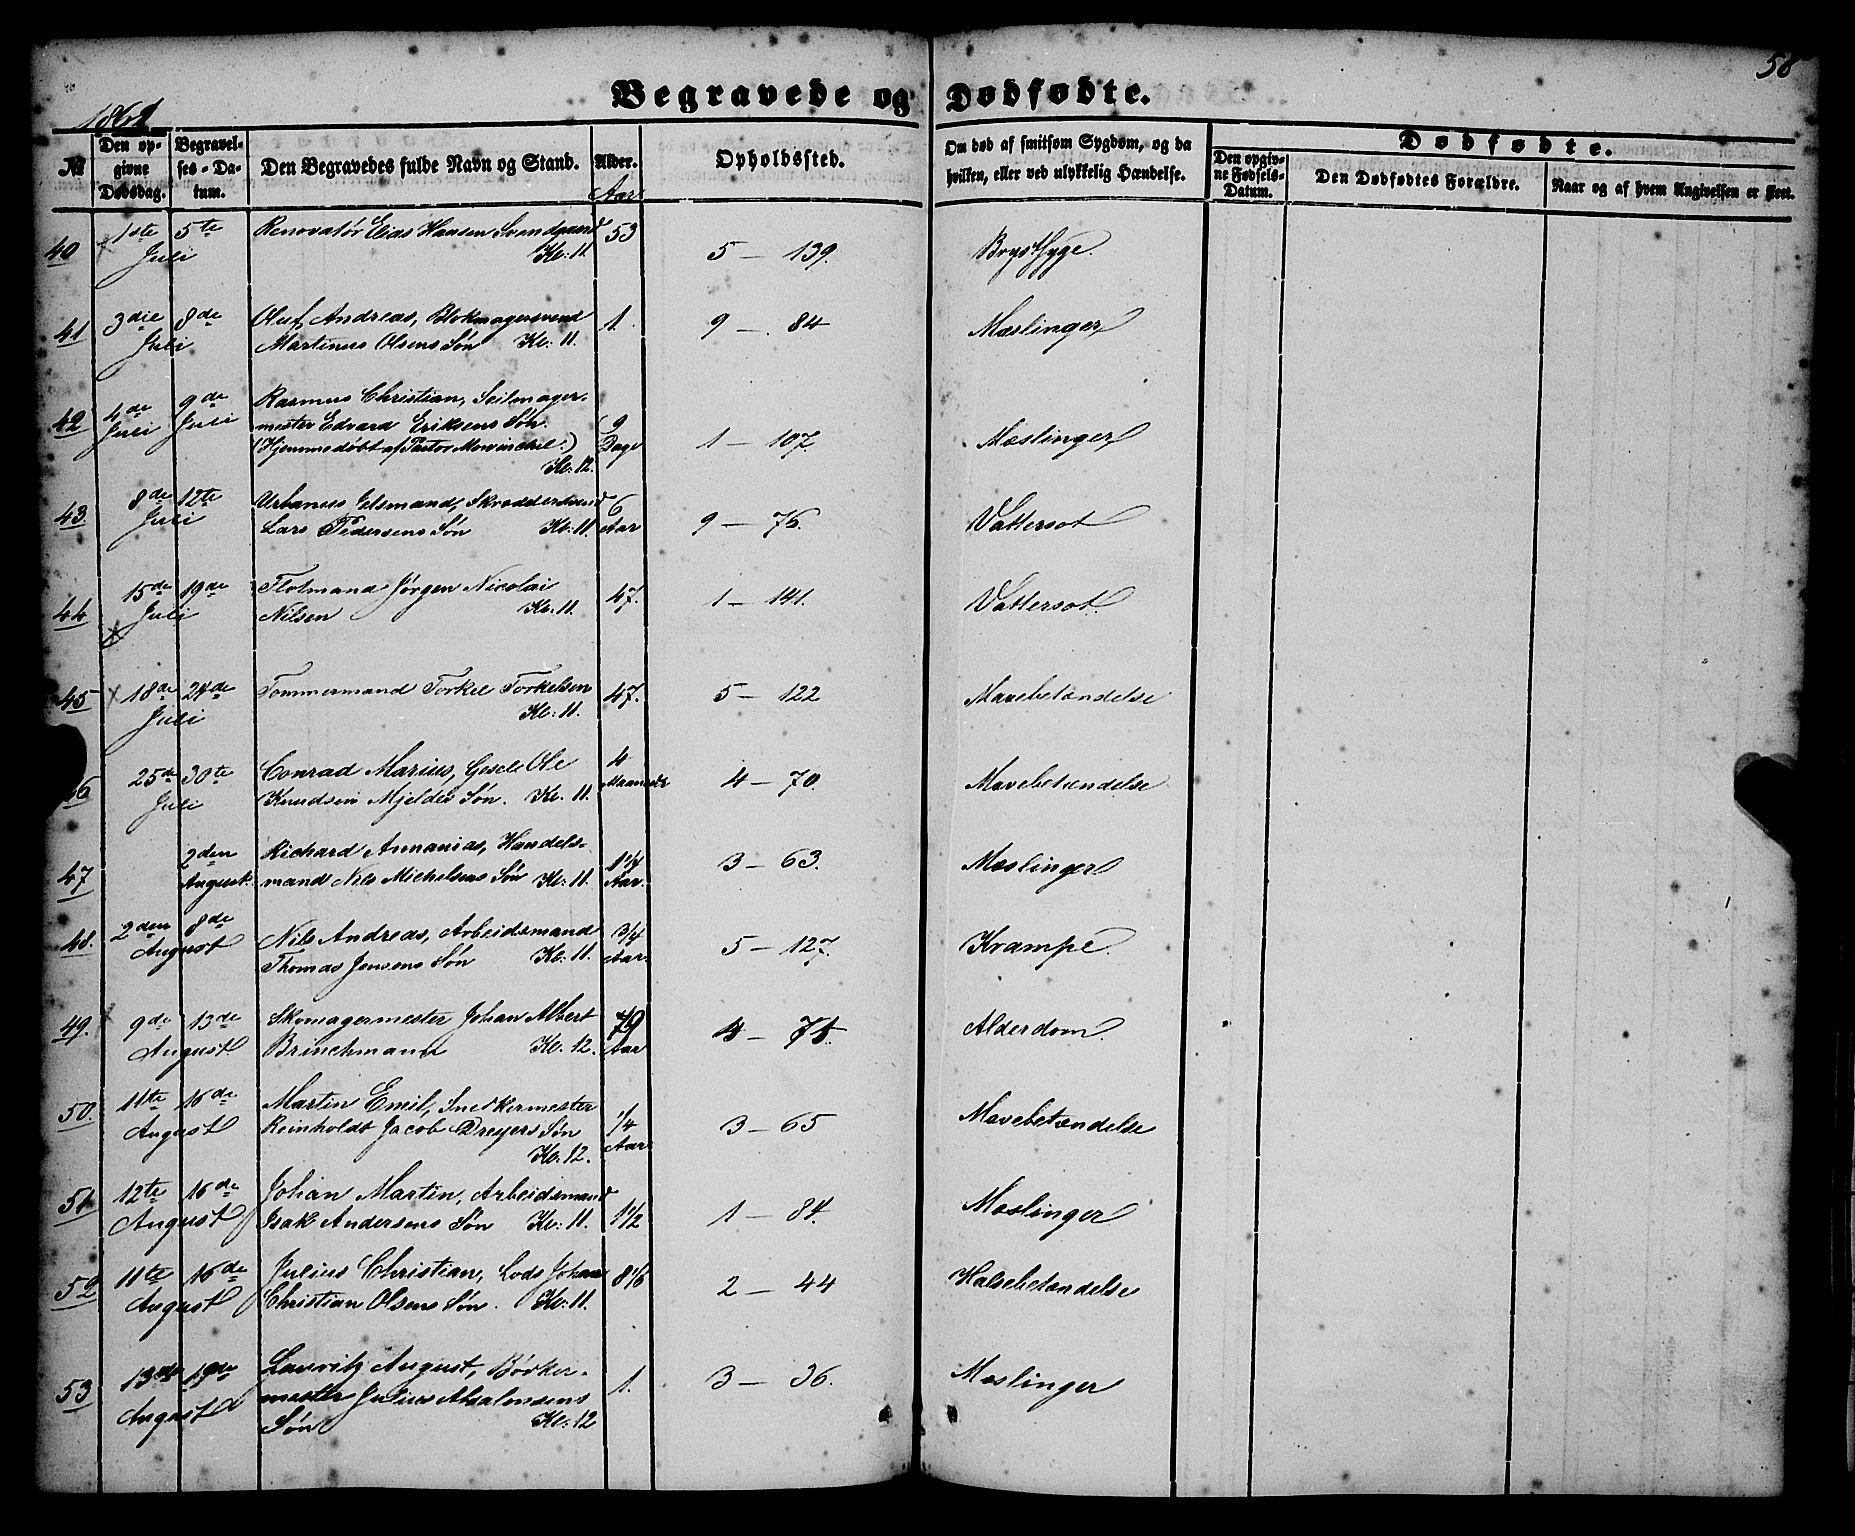 58
Begravede og Dødfødte.
1861
№ Den opgivne Dødsdag. Begravelses-Datum. Den Begravedes fulde Navn og Stand. Alder. Opholdssted. Om død af smitsom Sygdom, og da hvilken, eller ved ulykkelig Hændelse. Dødfødte.
Den opgivne Fødsels-Datum. Den Dødfødtes Forældre. Naar og af hvem Angivelsen er skeet.
Aar
40 1ste Juli 5te Renovatør Elias Hansen Svendgaard 53 5 — 139. Brystsyge.
Kl: 11.
41 3die Juli 8de Oluf Andreas, Blokmagersvend 1. 9 — 84 Mæslinger
Martinus Olsens Søn Kl: 11.
42 4de Juli 9de Juli Rasmus Christian, Seilmager- 9 Dage 1 — 107. Mæslinger
mester Edvard Eriksens Søn.
(Hjemmedøbt af Pastor Mowinckel.)
Kl: 12.
43 8de Juli 12te Urbanus Gelsmand, Skreddersvend 6 Aar 9 — 76. Vattersot
Lars Pedersens Søn Kl: 11.
44 15de Juli 19de Flotmand Jørgen Nicolai 47. 1 — 141. Vattersot.
Nilsen Kl: 11.
45 18de Juli 24de Tømmermand Torkel Torkelsen 47. 5 — 122 Mavebetændelse
Kl: 11.
46 25de Juli 30te Conrad Marius, Gesel Ole 4 Maaneder 4 — 70. Mavebetændelse
Knudsen Mjeldes Søn. Kl. 11.
47 2den August Richard Annanias, Handels- 1 1/4 Aar. 3 — 63. Mæslinger
mand Nils Michelsens Søn Kl: 11.
48. 2den August 8de Nils Andreas, Arbeidsmand 3/4 Aar. 5 — 127. Krampe.
Thomas Jensens Søn Kl: 11.
49. 9de August 13de Skomagermester Johan Albert 79 Aar 4 — 71. Alderdom.
Brinchmann Kl: 12.
50. 11te August 16de Martin Emil, Snedkermester 1/4 Aar. 3 — 65 Mavebetændelse
Reinholdt Jacob Dreyers Søn
Kl: 12.
51 12te August 16de Johan Martin, Arbeidsmand 1 1/2 1 — 84. Mæslinger
Isak Andersens Søn Kl: 11.
52 11te August 16de Julius Christian, Lods Johan 8 1/6 2 — 44 Halsebetændelse
Christian Olsens Søn. Kl: 11.
53 13de August 19de Lauritz August, Bødker- 1. 3 — 36. Mæslinger
mester Julius Absalonsens
Søn Kl: 12